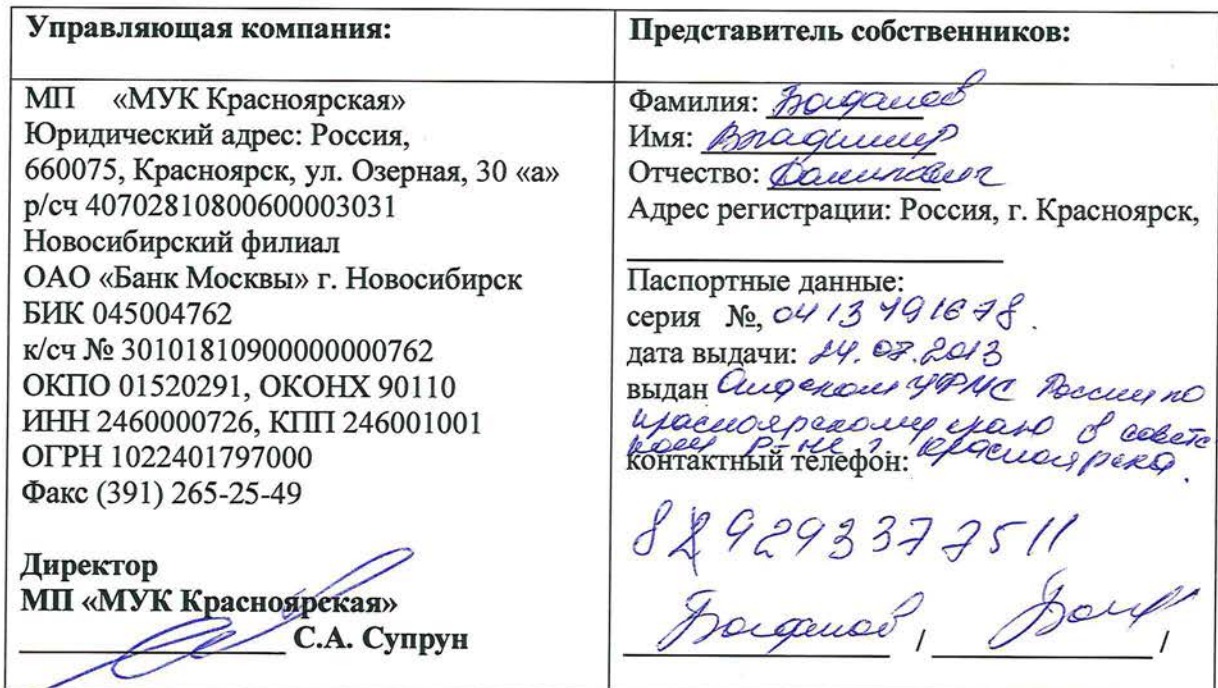 Управляющая компания:
МП «МУК Красноярская»
Юридический адрес: Россия,
660075, Красноярск, ул. Озерная, 30 «а»
р/сч 40702810800600003031
Новосибирский филиал
ОАО «Банк Москвы» г. Новосибирск
БИК 045004762
к/сч № 30101810900000000762
ОКПО 01520291, ОКОНХ 90110
ИНН 2460000726, КПП 246001001
ОГРН 1022401797000
Факс (391) 265-25-49
Директор
МП «МУК Красноярская»
С.А. Супрун
Представитель собственников:
Фамилия: Богданов
Имя: Владимир
Отчество:
Адрес регистрации: Россия, г. Красноярск,
Паспортные данные:
серия №, 0413 491678.
дата выдачи: 24.07.2013
выдан Отделом УФМС России по
Красноярскому краю в советс
ком р-не г. Красноярска.
контактный телефон:
8 9293377511
Богданов / /